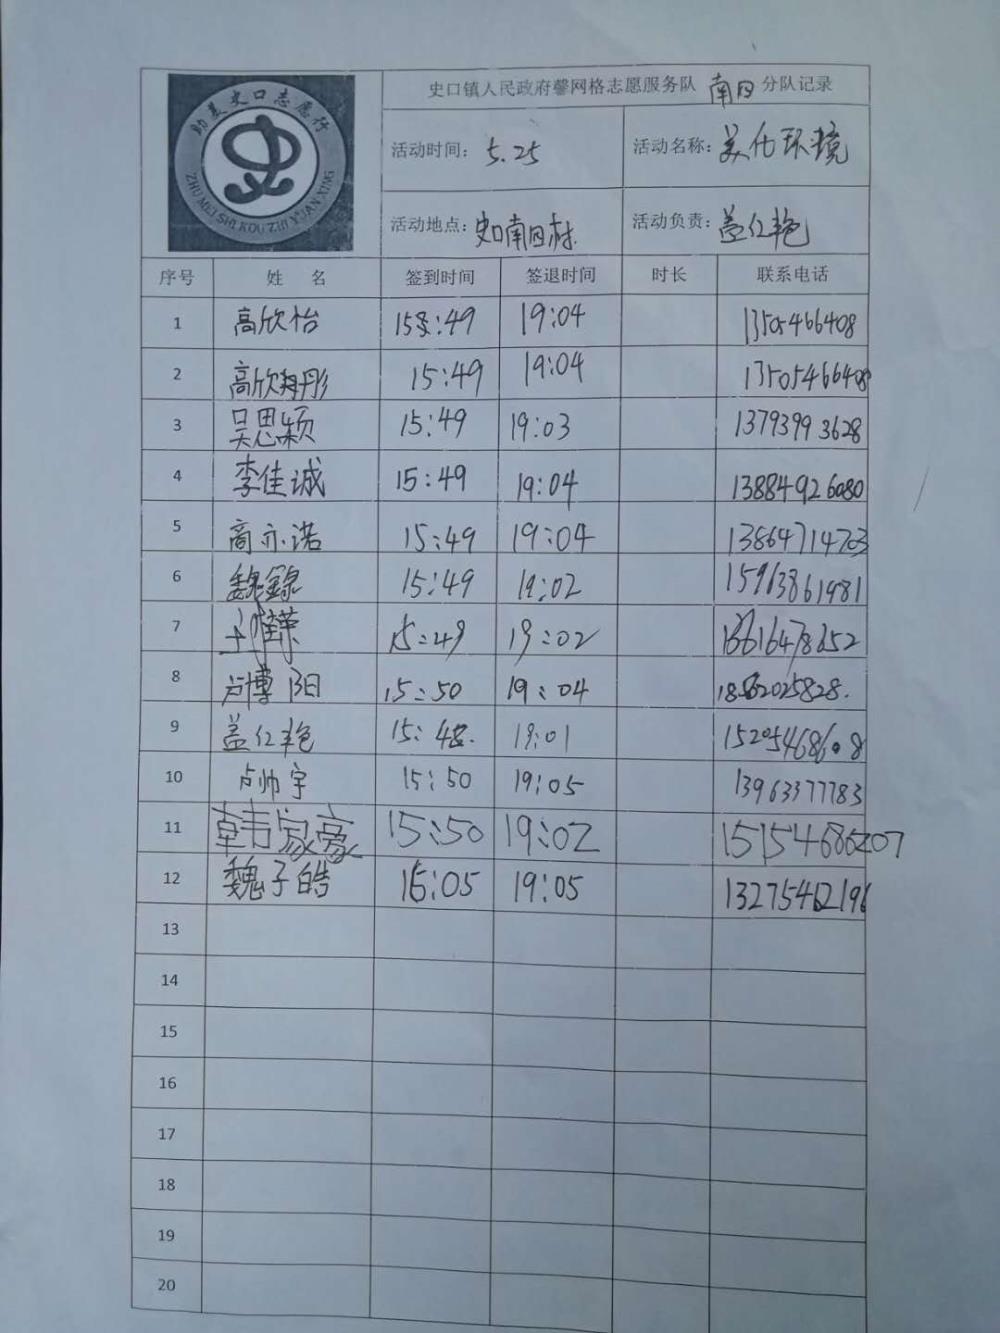 助美史口志愿行
ZHU MEI SHI KOU ZHI YUAN XING
史口镇人民政府馨网格志愿服务队 南四 分队记录
活动时间: 5.25 活动名称: 美化环境
活动地点: 史口南四村. 活动负责: 盖红艳
序号 姓名 签到时间 签退时间 时长 联系电话
1 高欣怡 15:49 19:04 13505466408
2 高欣翔彤 15:49 19:04 13505466408
3 吴思颖 15:49 19:03 13793993628
4 李佳诚 15:49 19:04 13884926080
5 高亦诺 15:49 19:04 13864714703
6 魏 15:49 19:02 15963861981
7 15:49 19:02
8 卢博阳 15:50 19:04
9 盖红艳 15:48. 19:01 15205468608
10 卢帅宇 15:50 19:05 13963377783
11 韩家豪 15:50 19:02 15154686207
12 魏子皓 16:05 19:05 13275462196
13
14
15
16
17
18
19
20